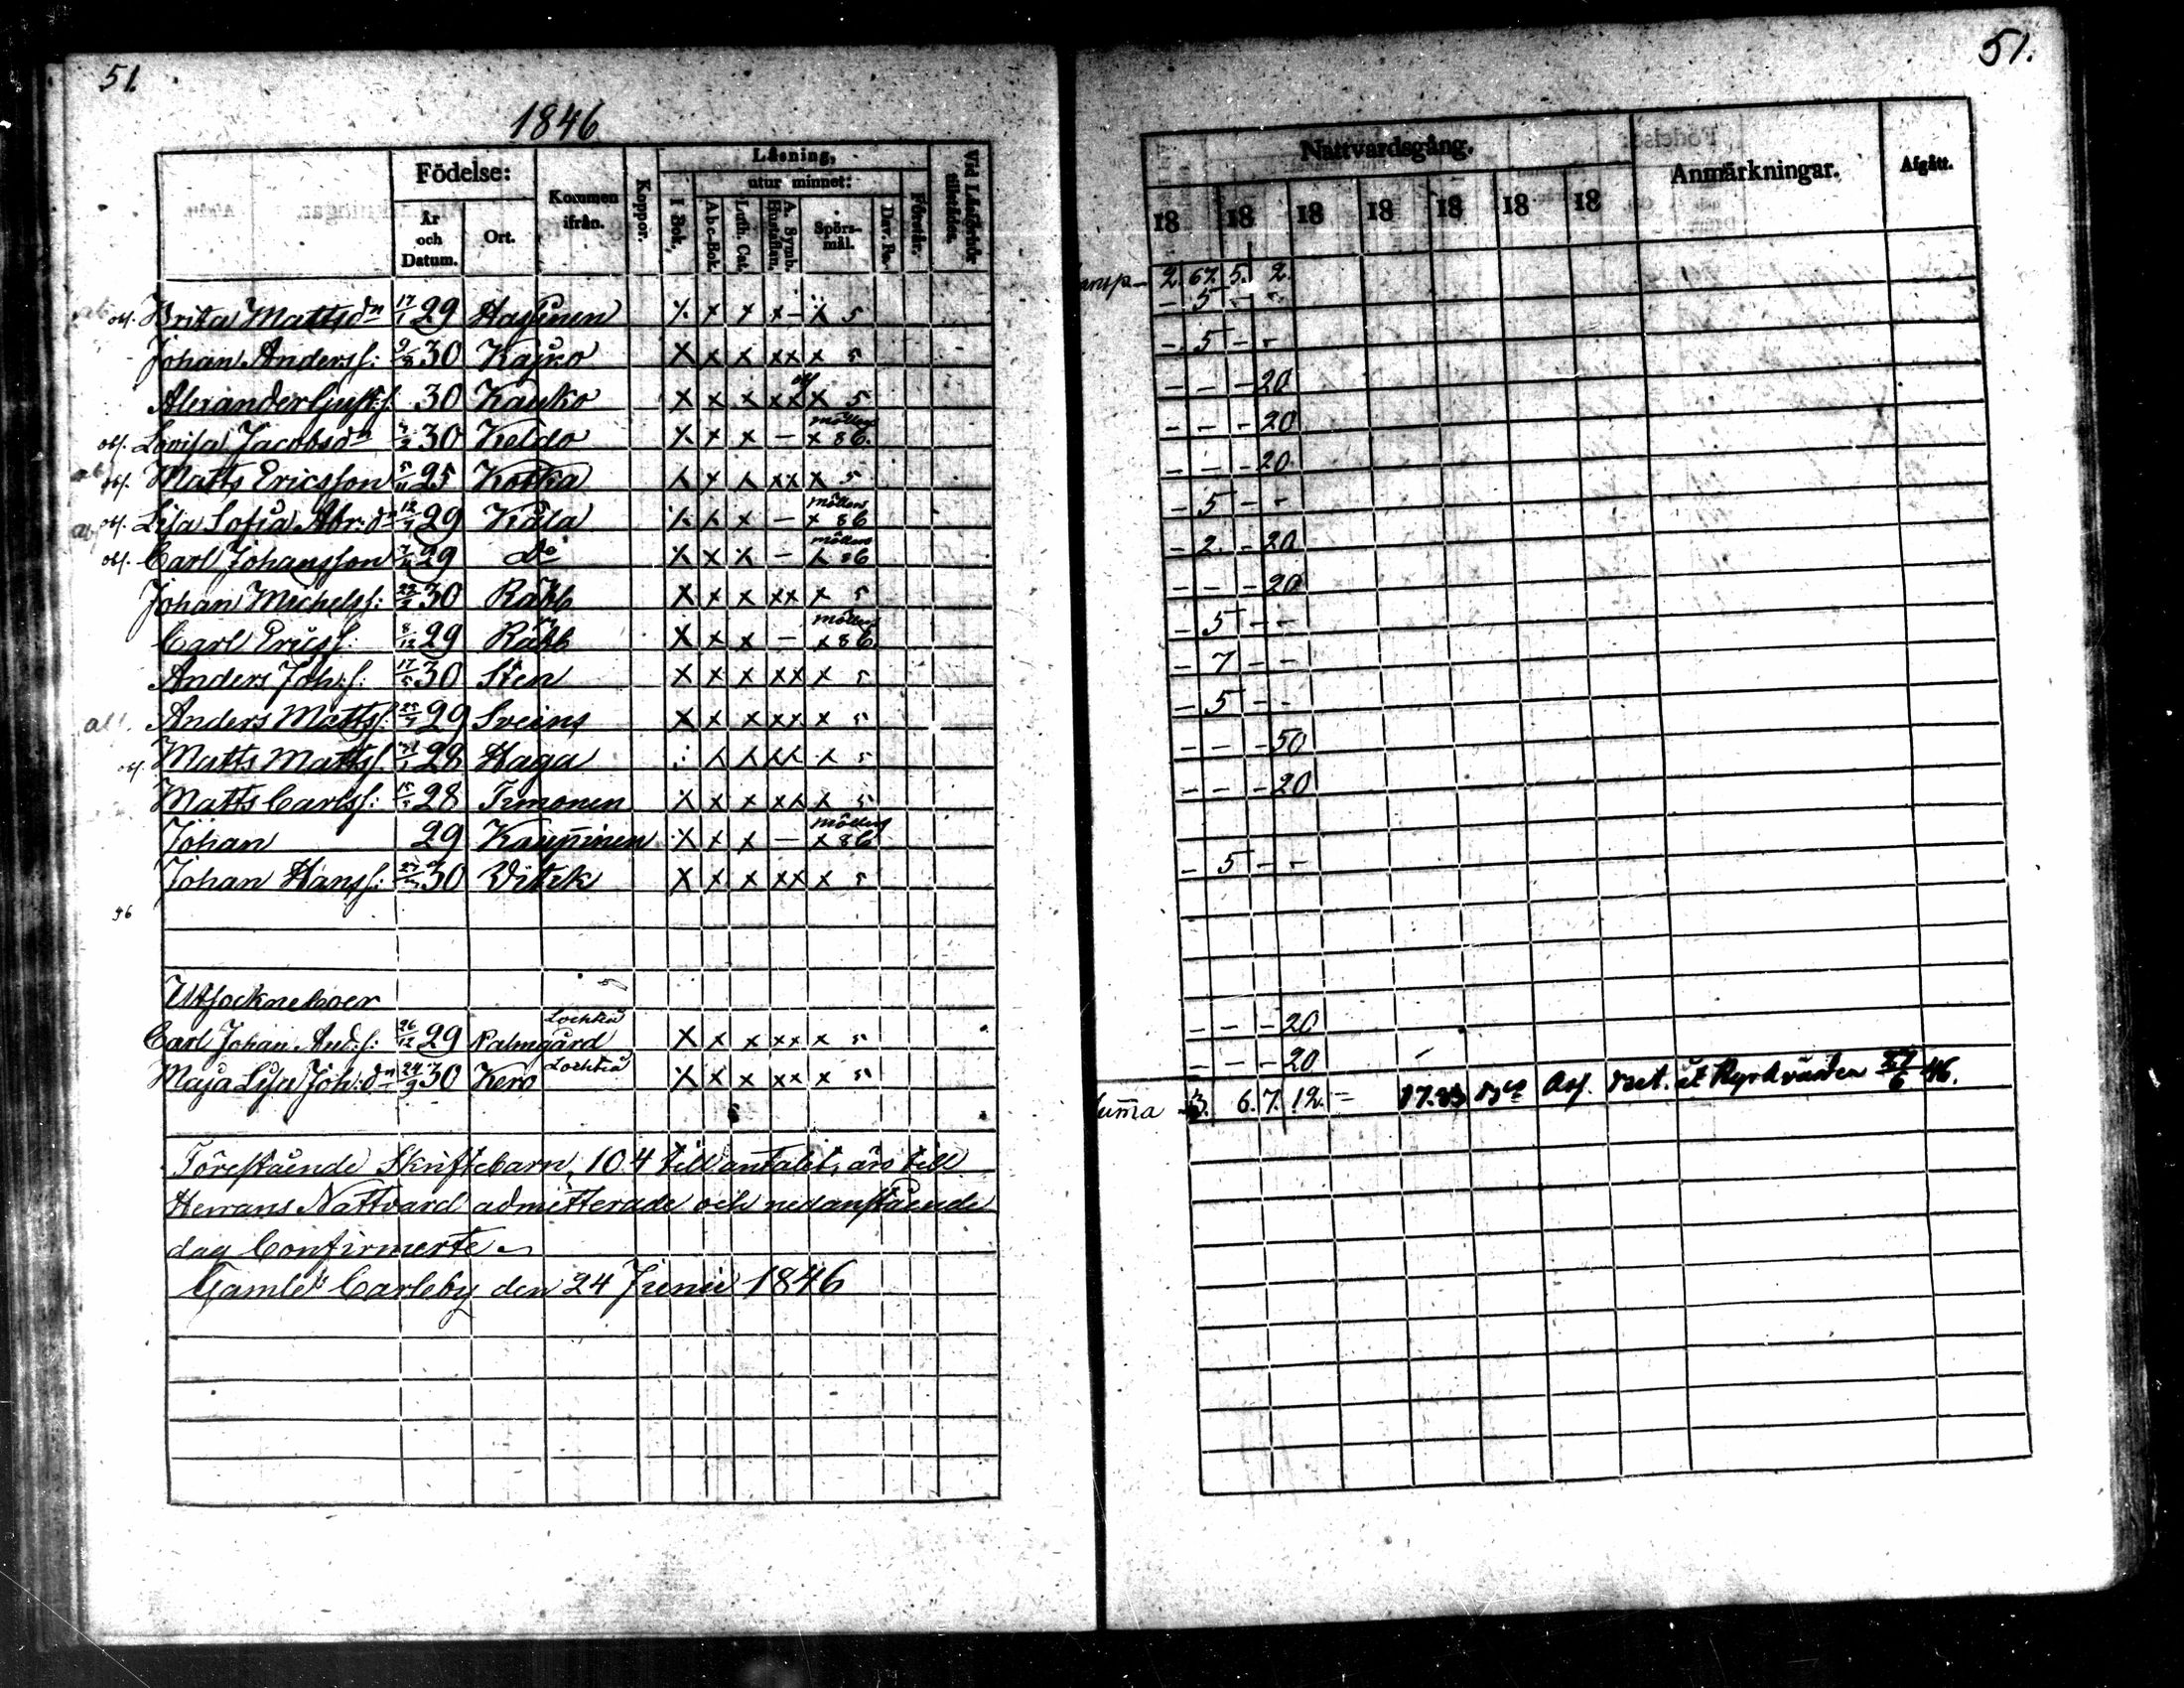 51.
1846
Födelse:
År och Datum.
Ort.
Kommen ifrån.
Koppor.
Läsning,
I Bok,
utur minnet:
A b c-Bok.
Luth. Cat.
A. Symb. Hustaflan.
Spörs-mål.
Dav. Ps.
Förstår.
Vid Läsförhör tillstädes.
obs. Brita Mattsdn 17/1 29 Hassinen x x x x - x 5
Johan Anderss: 9/8 30 Kajko x x x xx x 5
Alexander Gust:s. 30 Kauko x x x xx x 5
obs. Lovisa Jacobsdn 30 Keldo x x x - möllers x 86.
obs. Matts Ericsson 25 Koska x x x xx x 5
obs. Lisa Sofia Abr:dn 12/1 29 Kåla x x x - möllers x 86
obs. Carl Johansson 29 do x x x - möllers x 86
Johan Michelss: 30 Räbb x x x xx x 5
Carl Ericss: 8/12 29 Räbb x x x - möllers x 86
Anders Joh:s. 17/5 30 Sten x x x xx x 5
Anders Mattss. 29 Sveins x x x xx x 5
obs. Matts Mattss. 28 Haga x x xx x 5
Matts Carlss: 28 Timonen x x x xx x 5
Johan 29 Kaupinen x x x - möllers x 86
Johan Hanss: 30 Vitick x x x xx x 5
46
Utsockneboer
Carl Johan And:s: 26/12 29 Palmgård Lochteå x x x xx x 5
Maja Lisa Joh:dn 24/9 30 Kero Lochteå x x x xx x 5
Förestående Skriftebarn, 104 till antalet, äro till
Herrans Nattvard admitterade och nedanstående
dag Confirmerte.
Gamle Carleby den 24 Junii 1846
51.
Nattvardsgång.
18 18 18 18 18 18 18
Anmärkningar.
Afgått.
Transp- 2. 67. 5. 2.
- 5 - -
- 5 - -
- - - 20
- - - 20
- - - 20
- 5 - -
- 2. - 20
- - - 20
- 5 - -
- 7 - -
- 5 - -
- - - 50
- - - 20
- 5 - -
- - - 20
- - - 20
Summa 6. 7. 12. = 17. 23 Ass. åt Kyrkvärden 27/6 46.